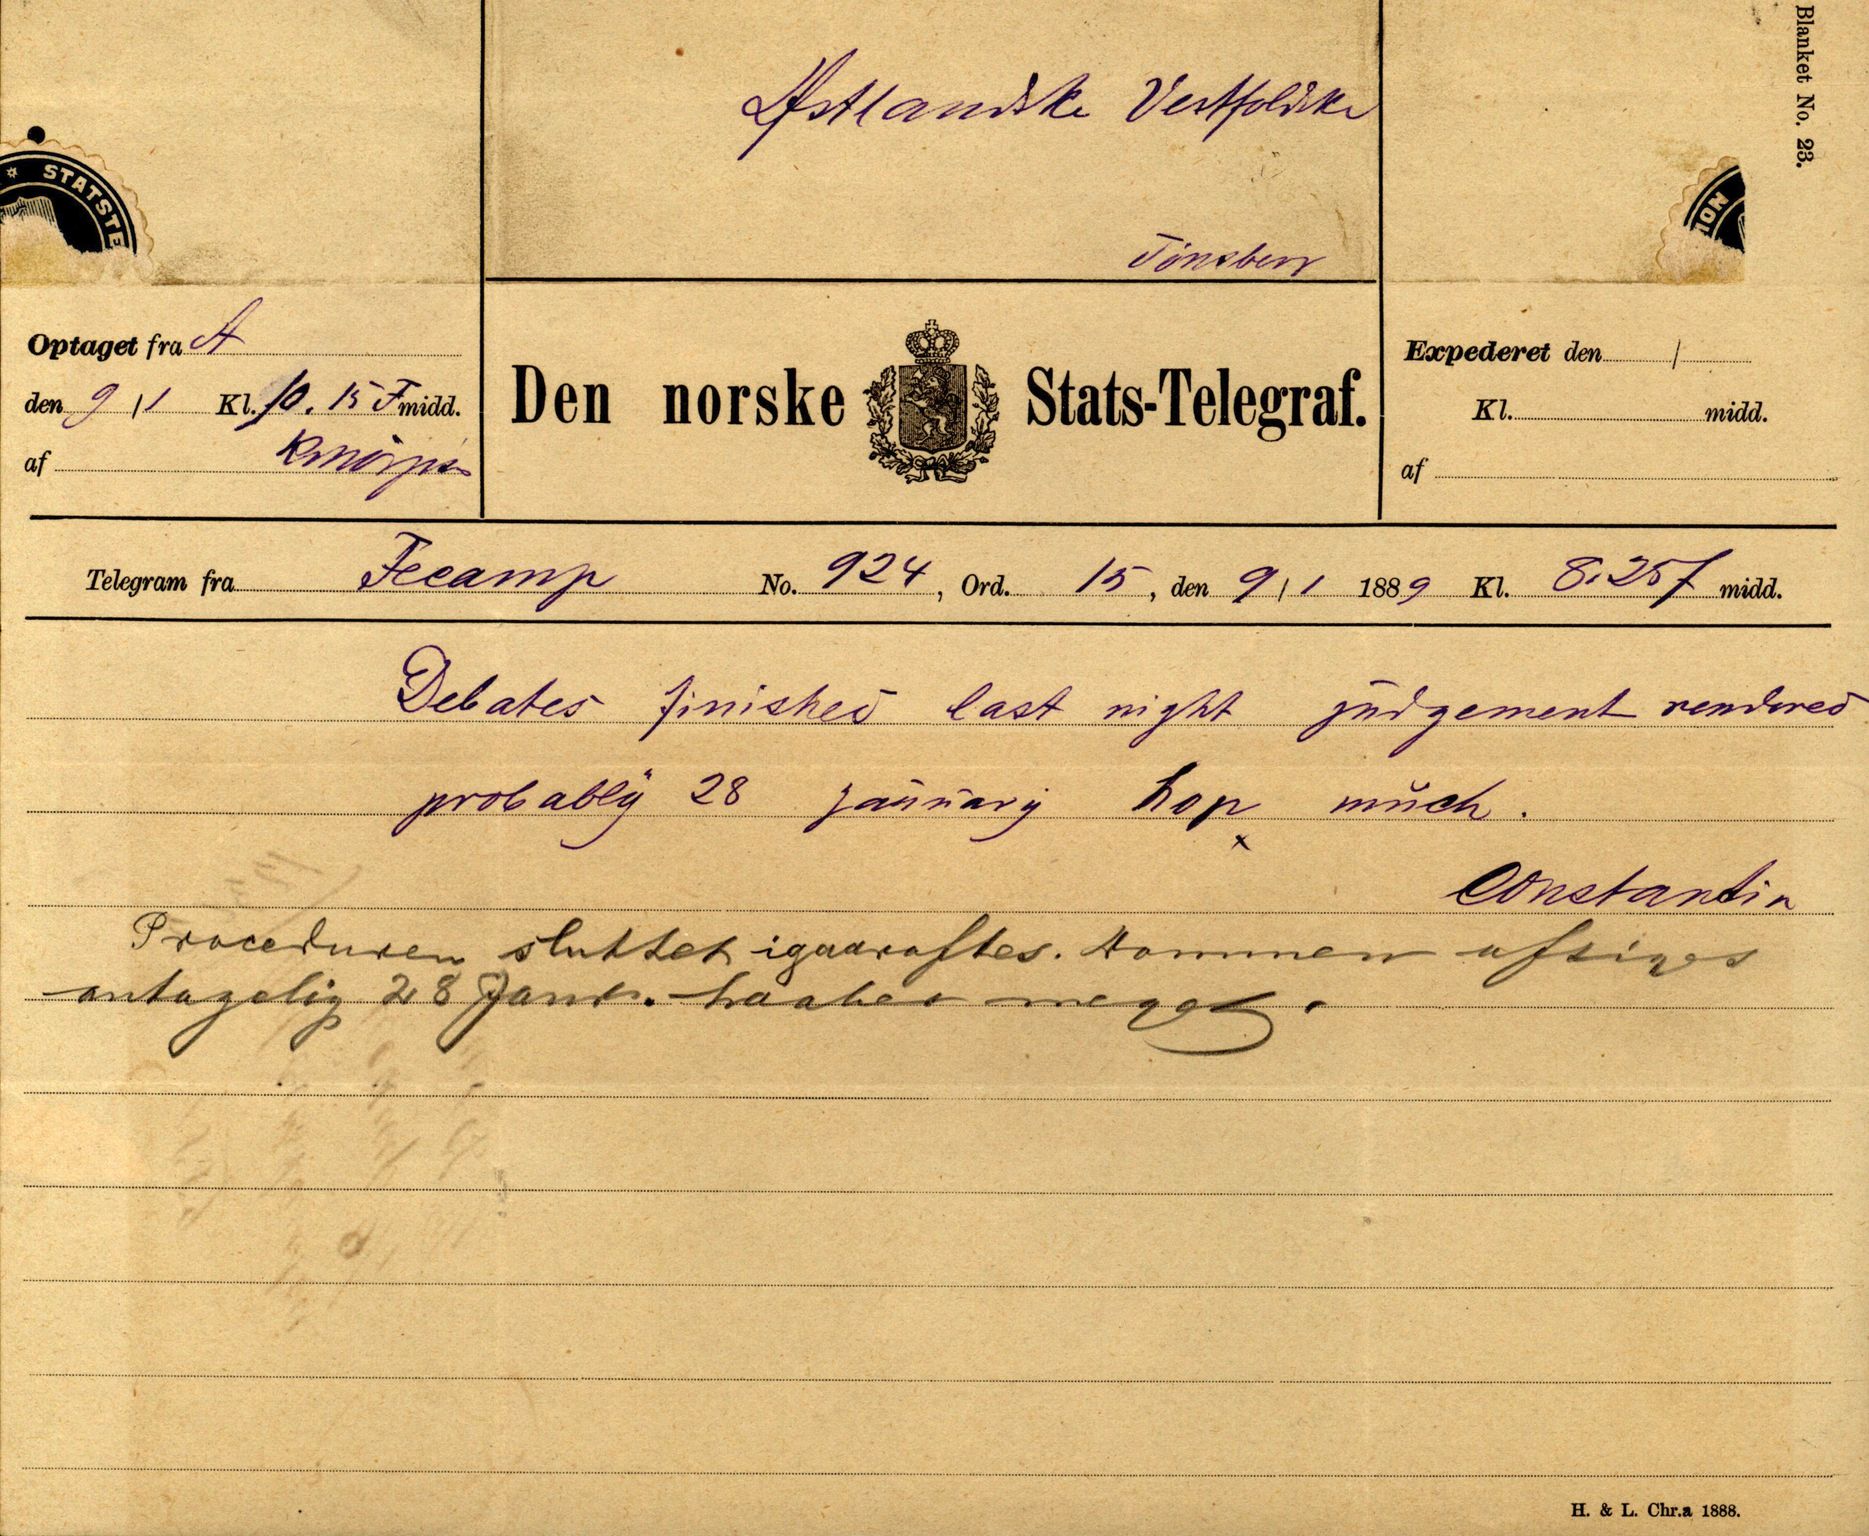 Blanket No. 23.
Østlandske Vestfoldske
Tönsberg
STATSTE
ION
Optaget fra A
den 9/1 Kl. 10.15 F midd.
af
Den norske Stats-Telegraf.
Expederet den /
Kl. midd.
af
Telegram fra Fecamp No. 924, Ord. 15, den 9/1 1889 Kl. 8.25 f midd.
Debates finished last night judgement rendered
probably 28 january hop much.
x
Constantin
Proceduren sluttet igaaraftes. Dommen afsiges
antagelig 28 Janr. haaber meget.
H. & L. Chr.a 1888.